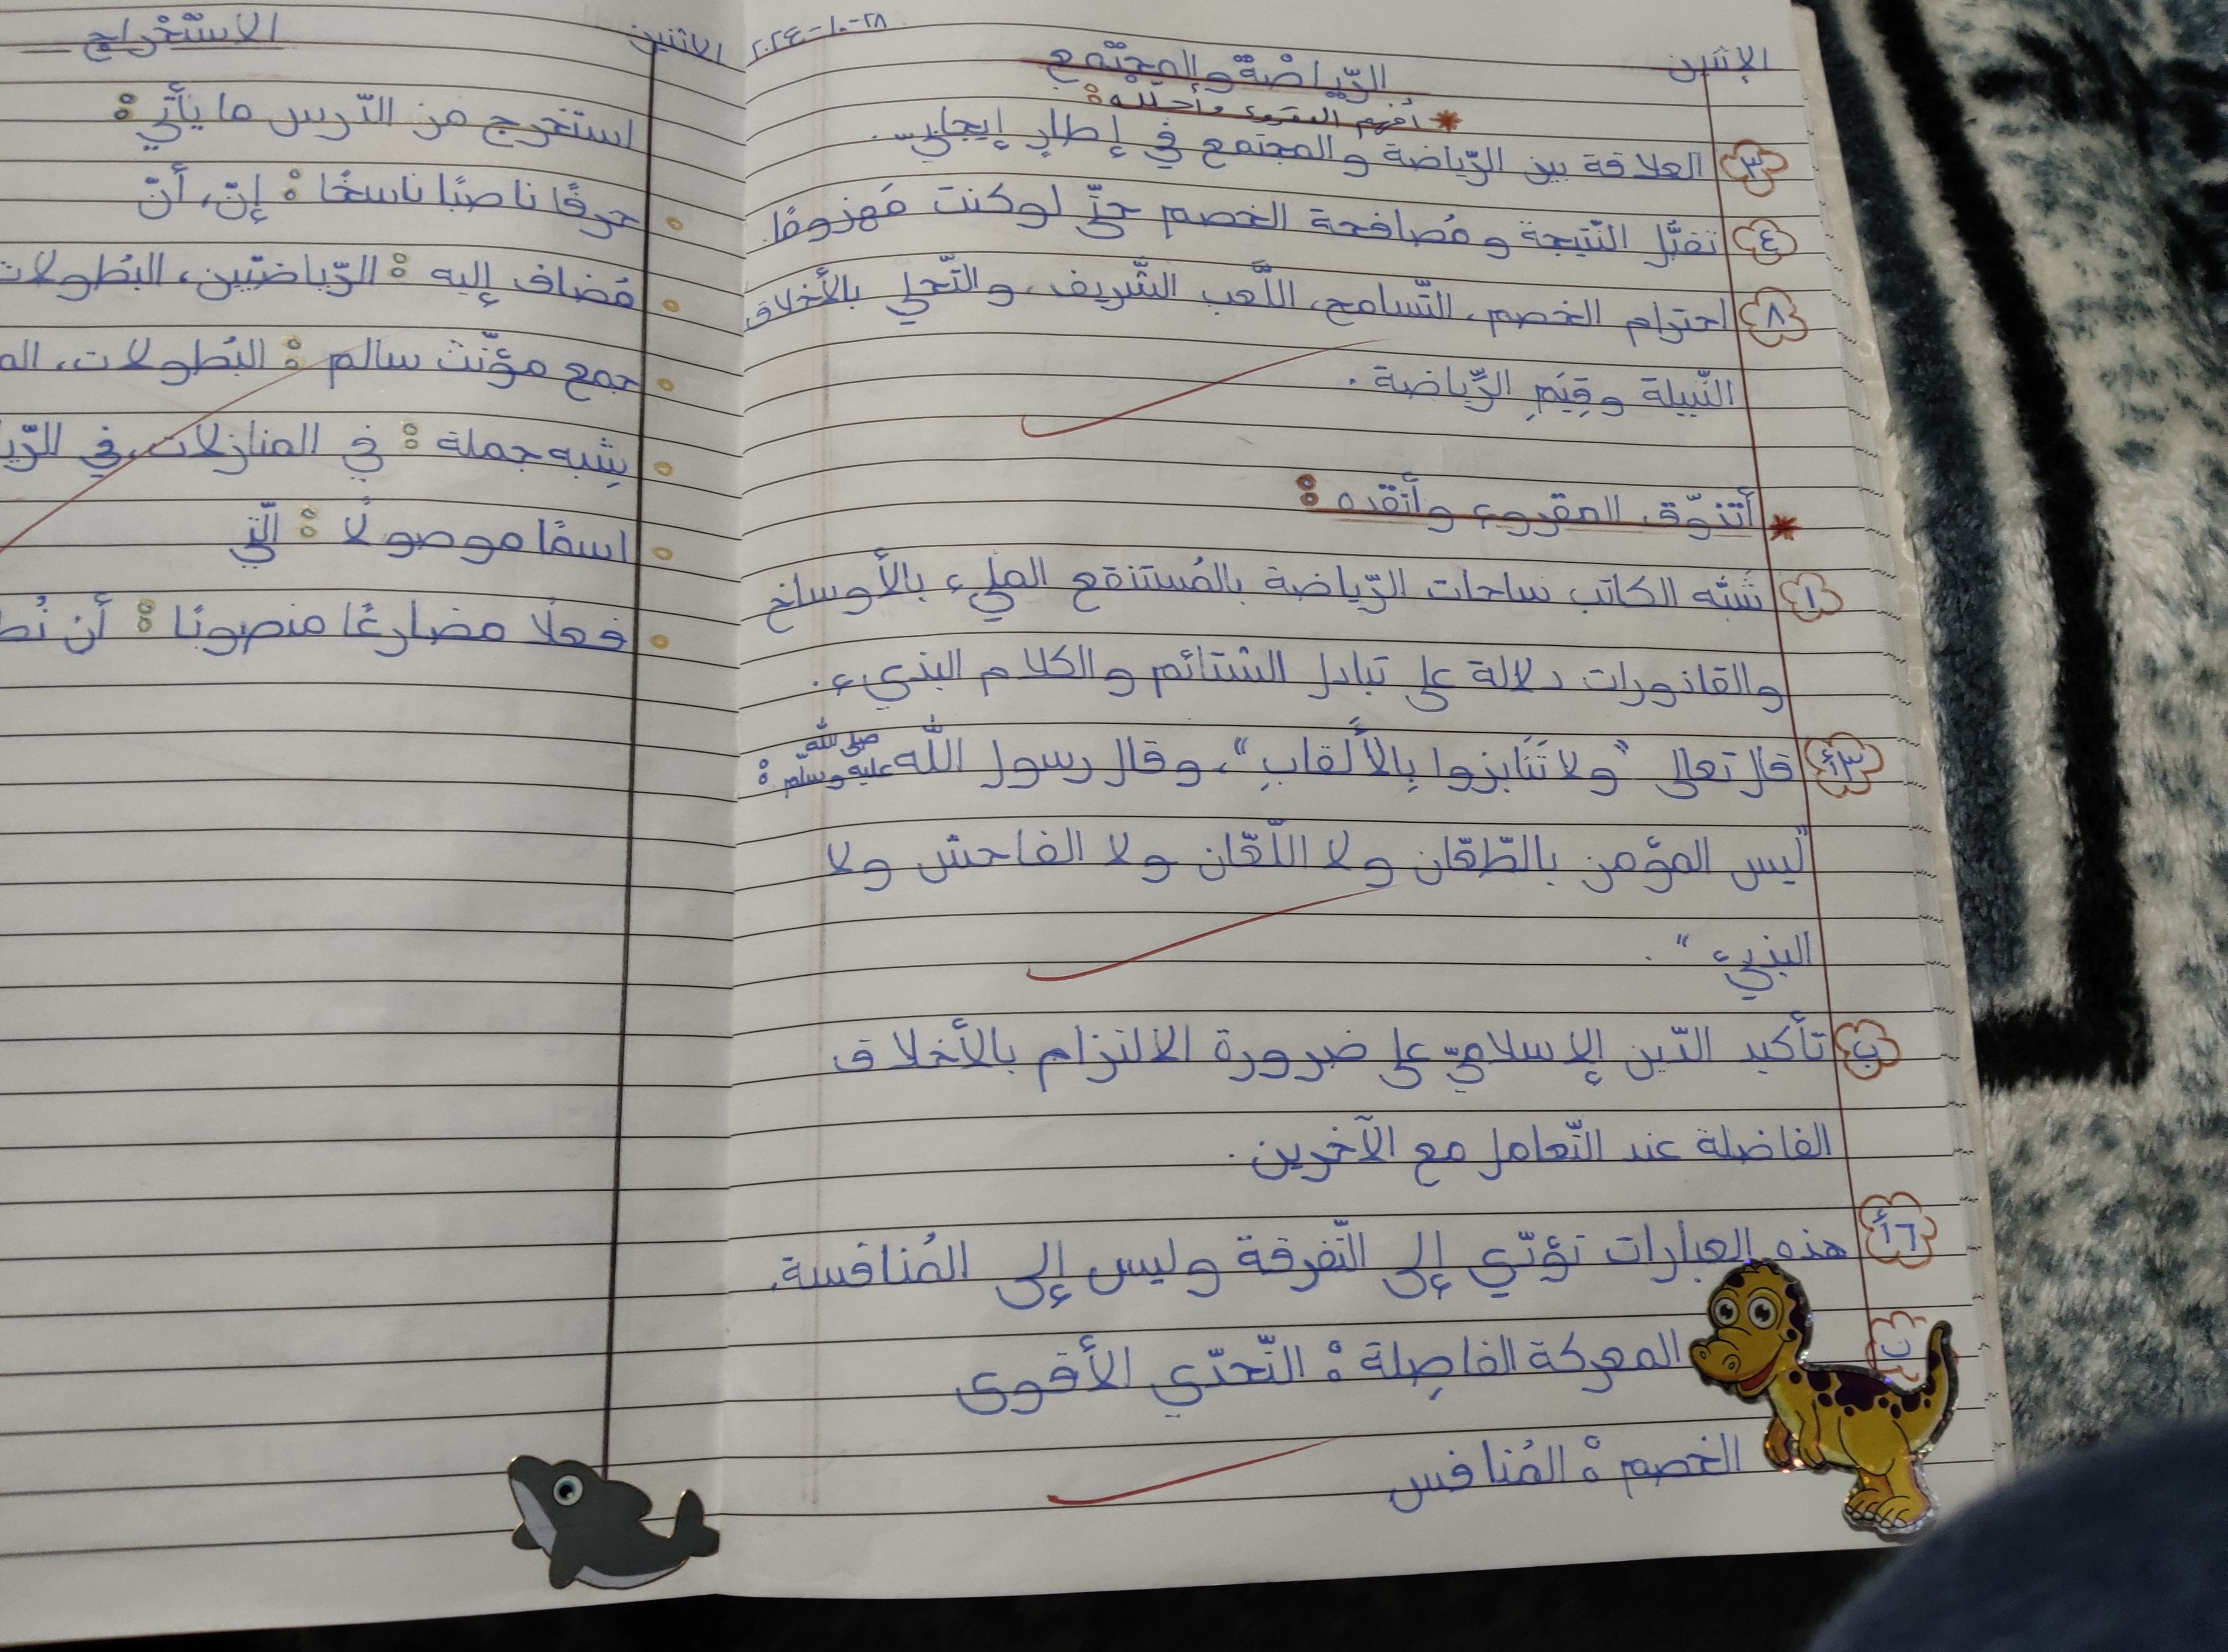 الإثنين
٢٨-١٠-٢٠٢٤
الرّياضة والمجتمع
* أفهم المقروء وأحلّله:
٣ العلاقة بين الرّياضة والمجتمع في إطارٍ إيجابيّ.
٤ تقبّل النّتيجة ومُصافحة الخصم حتّى لو كنت مَهزومًا.
٨ احترام الخصم، التّسامح، اللّعب الشّريف، والتّحلّي بالأخلاق
النّبيلة وقِيَمِ الرّياضة.
* أتذوّق المقروء وأنقده:
١ شَبّه الكاتب ساحات الرّياضة بالمُستنقع المليء بالأوساخ
والقاذورات دلالة على تبادل الشتائم والكلام البذيء.
٣أ قال تعالى "ولا تَنَابَزوا بِالأَلقابِ"، وقال رسول الله صلى الله عليه وسلّم:
"ليس المؤمن بالطّعّان ولا اللّعّان ولا الفاحش ولا
البذيء".
ب تأكيد الدّين الإسلاميّ على ضرورة الالتزام بالأخلاق
الفاضلة عند التّعامل مع الآخرين.
٦أ هذه العبارات تؤدّي إلى التّفرقة وليس إلى المُنافسة.
ب المعركة الفاصِلة: التّحدّي الأقوى
الخصم: المُنافس
الاثنين
الاستخراج
استخرج من الدّرس ما يأتي:
حرفًا ناصبًا ناسخًا: إنّ، أنّ
مُضاف إليه: الرّياضيّين، البُطولات
جمع مؤنّث سالم: البُطولات،
شِبه جملة: في المنازلات، في
اسمًا موصولًا: الّتي
فعلًا مضارعًا منصوبًا: أن